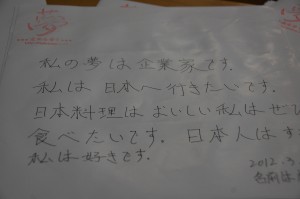 夢
私の夢は企業家です.
私は日本へ行きたいです.
日本料理はおいしい私はぜひ
食べたいです. 日本人はす
私は好きです.
2012.3
名前は